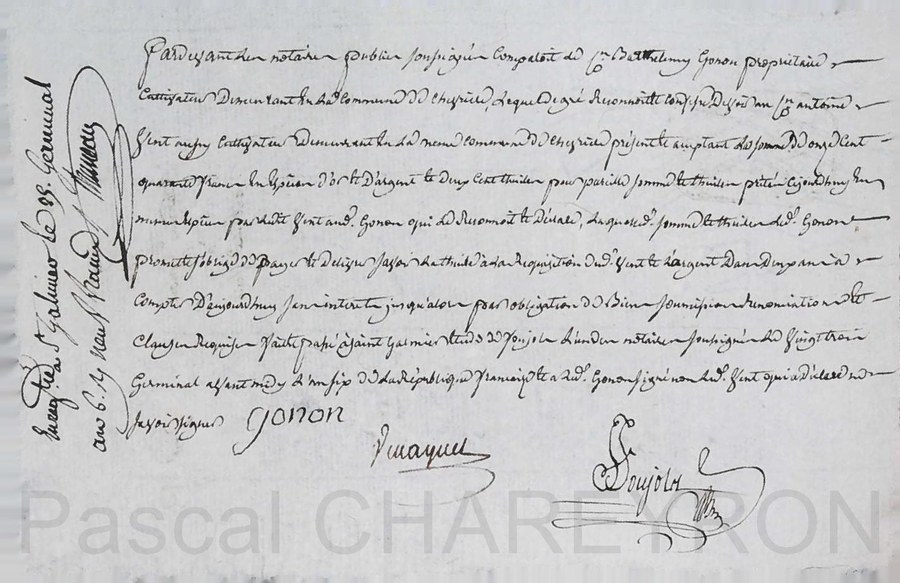 Pardevant les notaires publics soussignés Comparoit le Cn Barthelemy Gonon propriétaire
Cultivateur Demeurant en la Commune de Chevrière, Lequel de gré Reconnoit et Confesse Devoir au Cn antoine
aussy Cultivateur Demeurant en La meme commune de Chevrière présent et acceptant La somme de onze Cent
quarante francs En Espèces d'or et D'argent et Deux Cent thuiles pour pareille somme et thuiles prêtés Cejourdhuy En
memes Espèces par led. aud. Gonon qui Le Reconnoit et Déclare, Laquelle d. somme et thuiles led. Gonon
promet et s'oblige de payer et Délivrer savoir La thuile à La Requisition dud. et L'argent Dans Deux ans à
Compter D'aujourdhuy sans interets jusqu'alors par obligation de Biens soumission Renonciation et
Clauses Requises fait et passé à Saint Galmier Etude de Soujols L'un des notaires soussignés Le Vingt trois
Germinal avant midy L'an six de La République française et a led. Gonon signé non led. qui a Déclaré ne
savoir signer Gonon
Soujols
Enregtré à St Galmier le 28 Germinal
an 6. Reçu neuf francs
Pascal CHAREYRON